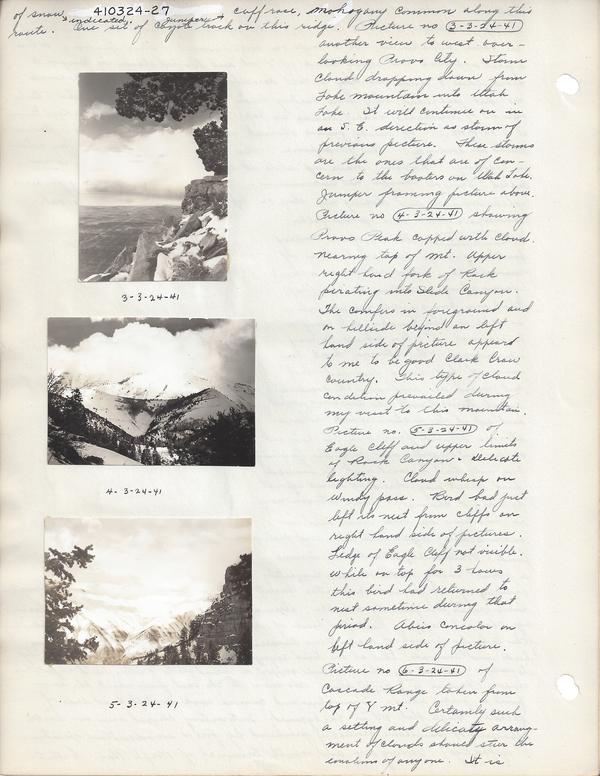 410324-27
of snow indicated. Junipers, cliff rose, mahogany common along this
route. One set of Coyote track on this ridge. Picture no 3-3-24-41
another view to west over-
looking Provo City. Storm
cloud dropping down from
Lake mountain into Utah
Lake. It will continue on in
an S.E. direction as storm of
previous picture. These storms
are the ones that are of con-
cern to the boaters on Utah Lake.
Juniper framing picture above.
Picture no 4-3-24-41 showing
Provo Peak capped with cloud.
nearing top of mt. Upper
right hand fork of Rock
perating into Slide Canyon.
The conifers in foreground and
on hillside beyond on left
hand side of picture appeard
to me to be good Clark Craw
country. This type of cloud
condition prevailed during
my visit to this mountain.
Picture no. 5-3-24-41 of
Eagle Cliff and upper limits
of Rock Canyon. Delicate
lighting. Cloud whisp on
Windy pass. Bird had just
left its nest from cliffs on
right hand side of pictures.
Ledge of Eagle Cliff not visible.
While on top for 3 hours
this bird had returned to
nest sometime during that
period. Abies concolor on
left hand side of picture.
Picture no 6-3-24-41 of
Cascade Range taken from
top of Y mt. Certainly such
a setting and delicate arrang-
ment of clouds should stur the
emotions of anyone. It is
3-3-24-41
4-3-24-41
5-3-24-41